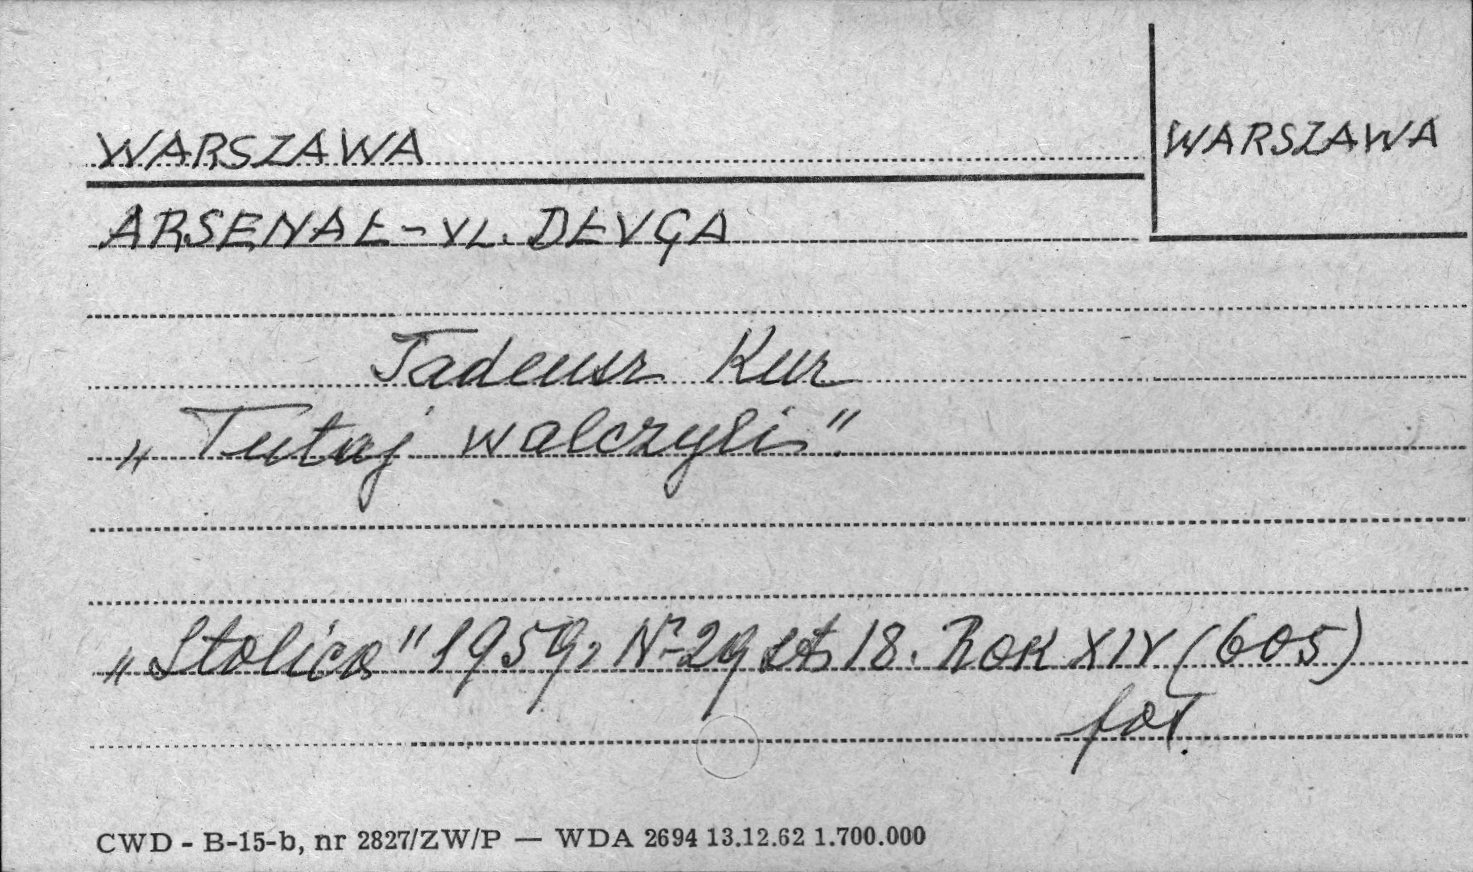 WARSZAWA
WARSZAWA
ARSENAŁ - UL. DŁUGA
Tadeusz Kur
„Tutaj walczyli".
„Stolica" 1959, Nr 29 st. 18. Rok XIV (605)
fot.
CWD - B-15-b, nr 2827/ZW/P — WDA 2694 13.12.62 1.700.000